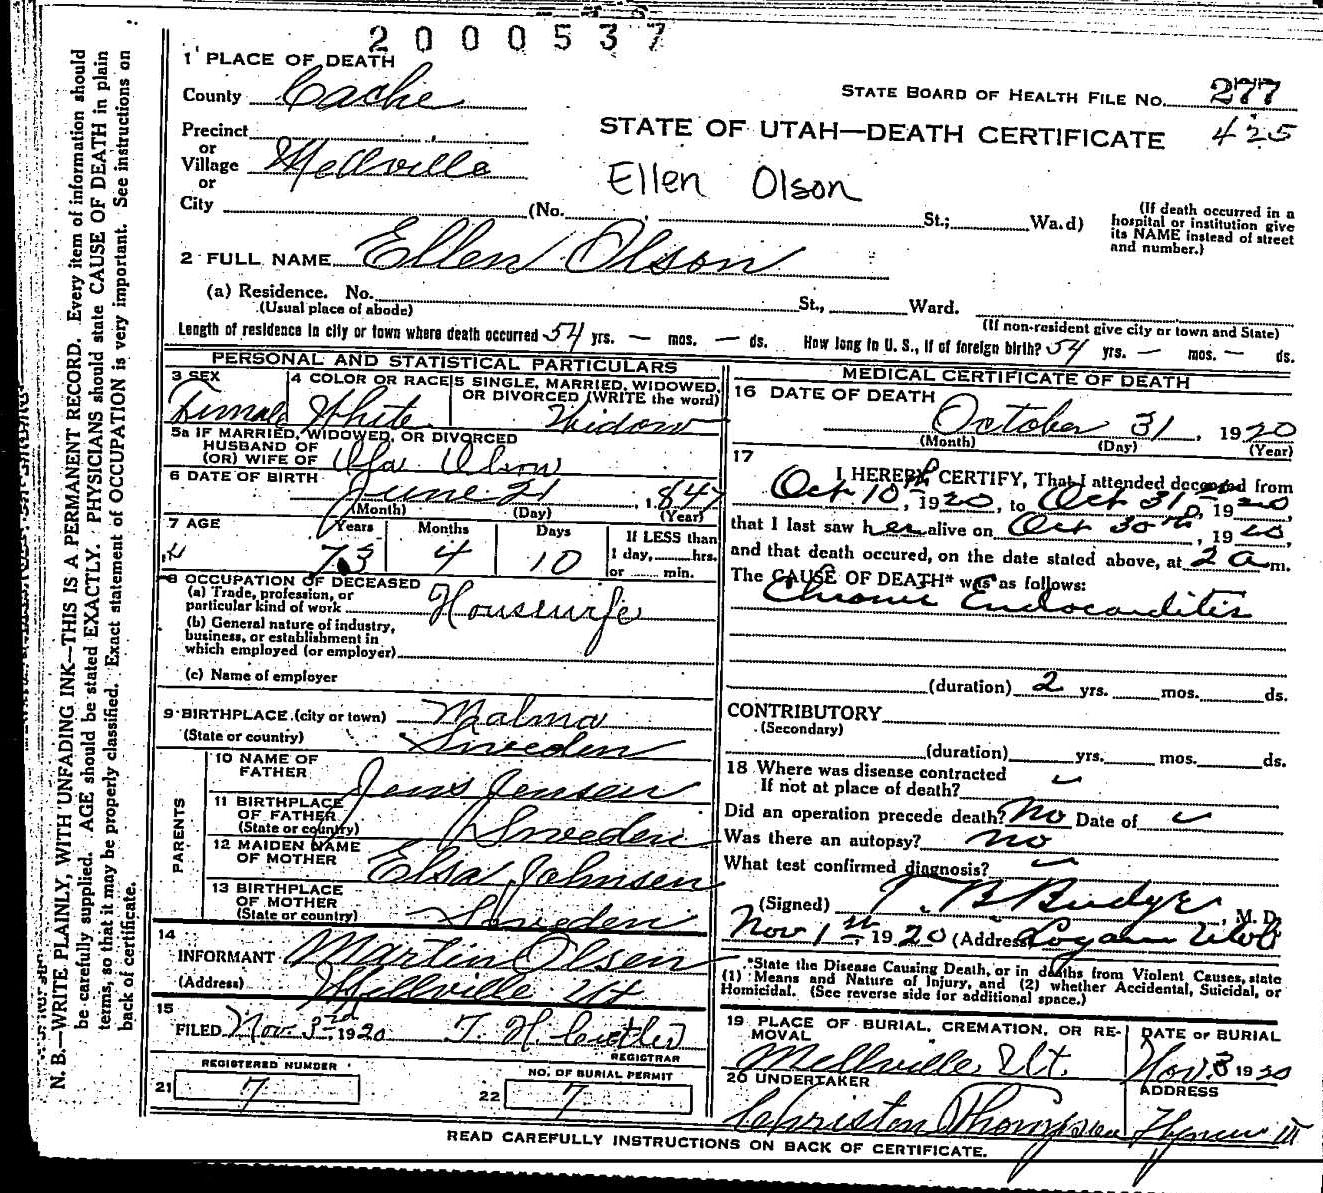 2000537
1 PLACE OF DEATH
County Cache
STATE BOARD OF HEALTH FILE No. 277
425
STATE OF UTAH—DEATH CERTIFICATE
Precinct
or
Village Millville
or
City (No. St.; Wa.d)
Ellen Olson
(If death occurred in a
hospital or institution give
its NAME instead of street
and number.)
2 FULL NAME Ellen Olson
(a) Residence. No. St., Ward.
(Usual place of abode) (If non-resident give city or town and State)
Length of residence in city or town where death occurred 54 yrs. — mos. — ds. How long in U. S., if of foreign birth? 54 yrs. — mos. — ds.
PERSONAL AND STATISTICAL PARTICULARS
3 SEX
Female
4 COLOR OR RACE
White
5 SINGLE, MARRIED, WIDOWED,
OR DIVORCED (WRITE the word)
Widow
5a IF MARRIED, WIDOWED, OR DIVORCED
HUSBAND OF
(OR) WIFE OF Olson
6 DATE OF BIRTH
June 21, 1847
(Month) (Day) (Year)
7 AGE
Years Months Days
73 4 10
If LESS than
1 day, hrs.
or min.
8 OCCUPATION OF DECEASED
(a) Trade, profession, or
particular kind of work Housewife
(b) General nature of industry,
business, or establishment in
which employed (or employer)
(c) Name of employer
9 BIRTHPLACE (city or town) Malmo
(State or country) Sweden
PARENTS
10 NAME OF
FATHER Jens Jensen
11 BIRTHPLACE
OF FATHER
(State or country) Sweden
12 MAIDEN NAME
OF MOTHER Elsa Johnsen
13 BIRTHPLACE
OF MOTHER
(State or country) Sweden
14
INFORMANT Martin Olsen
(Address) Millville Ut
15
FILED Nov. 3rd 1920 T. H. Cutler
REGISTRAR
REGISTERED NUMBER
21 7
NO. OF BURIAL PERMIT
22 7
MEDICAL CERTIFICATE OF DEATH
16 DATE OF DEATH
October 31, 1920
(Month) (Day) (Year)
17
I HEREBY CERTIFY, That I attended deceased from
Oct 10th, 1920, to Oct 31st, 1920,
that I last saw her alive on Oct 30th, 1920,
and that death occured, on the date stated above, at 2 a m.
The CAUSE OF DEATH* was as follows:
Chronic Endocarditis
(duration) 2 yrs. mos. ds.
CONTRIBUTORY
(Secondary)
(duration) yrs. mos. ds.
18 Where was disease contracted
If not at place of death?
Did an operation precede death? No Date of
Was there an autopsy? no
What test confirmed diagnosis?
(Signed) T. B. Budge, M. D.
Nov 1st 1920 (Address Logan Utah
*State the Disease Causing Death, or in deaths from Violent Causes, state
(1) Means and Nature of Injury, and (2) whether Accidental, Suicidal, or
Homicidal. (See reverse side for additional space.)
19 PLACE OF BURIAL, CREMATION, OR RE-
MOVAL
Millville, Ut.
DATE OF BURIAL
Nov. 3 1920
20 UNDERTAKER
ADDRESS
READ CAREFULLY INSTRUCTIONS ON BACK OF CERTIFICATE.
N. B.—WRITE PLAINLY, WITH UNFADING INK—THIS IS A PERMANENT RECORD. Every item of information should
be carefully supplied. AGE should be stated EXACTLY. PHYSICIANS should state CAUSE OF DEATH in plain
terms, so that it may be properly classified. Exact statement of OCCUPATION is very important. See instructions on
back of certificate.